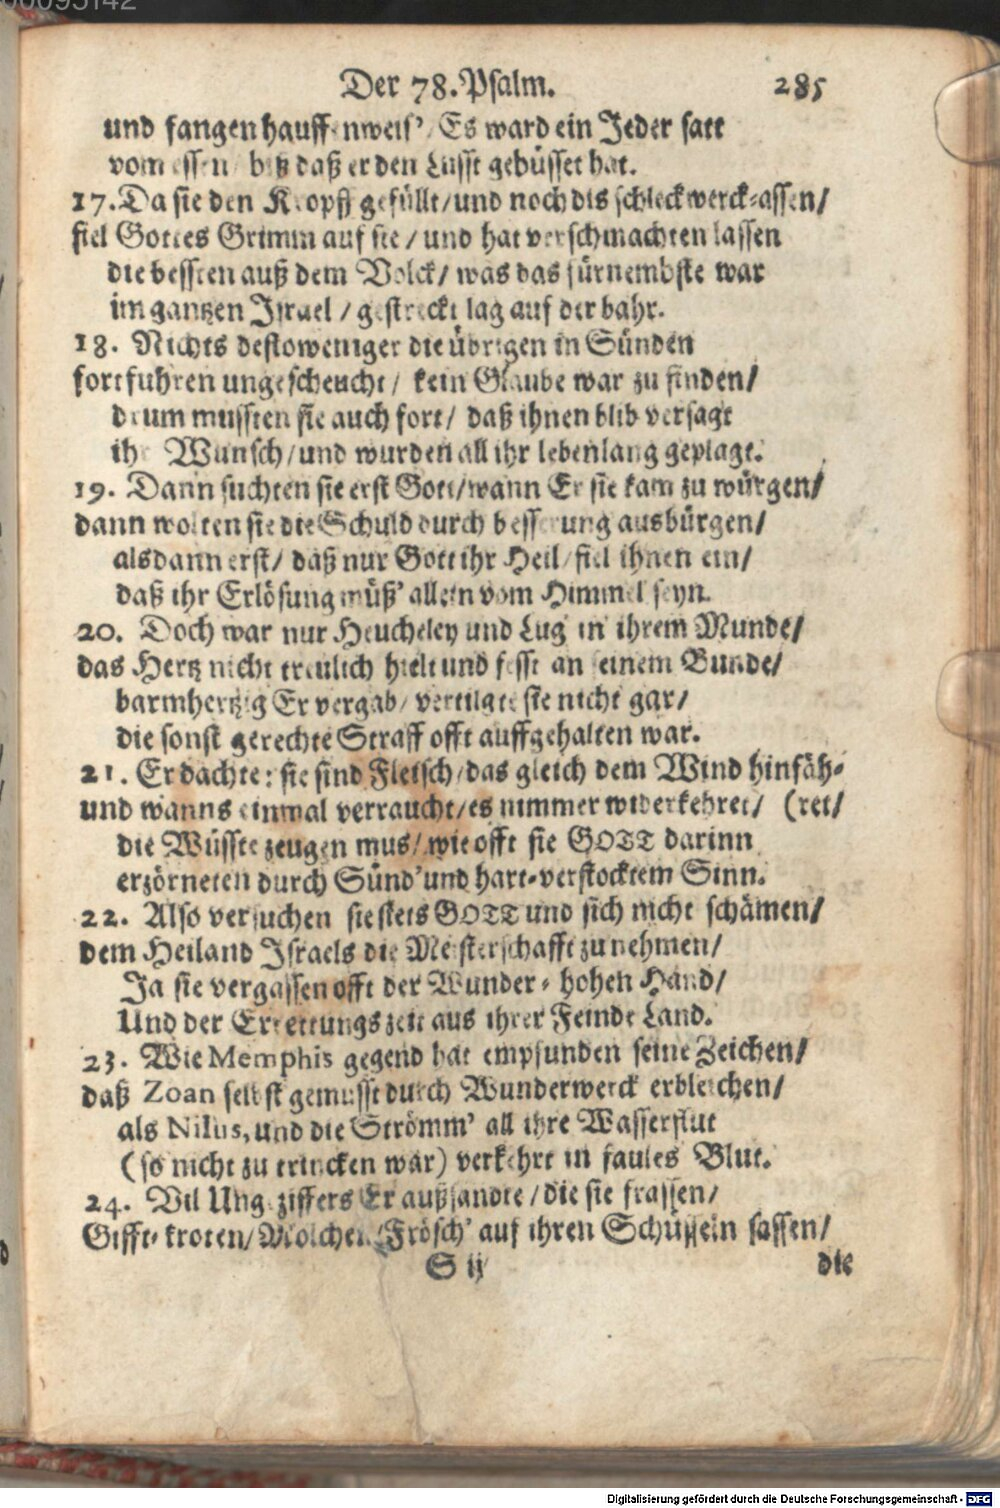 00093142
Der 78. Psalm. 285
und fangen hauffenweis'/ Es ward ein Jeder satt
vom essen/ biß daß er den Lusst gebüsset hat.
17. Da sie den Kropff gefüllt/ und noch dis schleckwerck-assen/
fiel Gottes Grimm auf sie/ und hat verschmachten lassen
die bessten auß dem Volck/ was das fürnembste war
im gantzen Israel/ gestreckt lag auf der bahr.
18. Nichts destoweniger die übrigen in Sünden
fortfuhren ungescheucht/ kein Glaube war zu finden/
drum mussten sie auch fort/ daß ihnen blib versagt
ihr Wunsch/ und wurden all ihr lebenlang geplagt.
19. Dann suchten sie erst Gott/ wann Er sie kam zu würgen/
dann wolten sie die Schuld durch besserung ausbürgen/
alsdann erst/ daß nur Gott ihr Heil/ fiel ihnen ein/
daß ihr Erlösung müß' allein vom Himmel seyn.
20. Doch war nur Heucheley und Lug in ihrem Munde/
das Hertz nicht treulich hielt und fesst an seinem Bunde/
barmhertzig Er vergab/ vertilgte sie nicht gar/
die sonst gerechte Straff offt auffgehalten war.
21. Er dachte: sie sind Fleisch/ das gleich dem Wind hinfäh-
und wanns einmal verraucht/ es nimmer widerkehret/ (ret/
die Wüsste zeugen mus/ wie offt sie GOTT darinn
erzörneten durch Sünd' und hart-verstocktem Sinn.
22. Also versuchen sie stets GOTT und sich nicht schämen/
dem Heiland Israels die Meisterschafft zu nehmen/
Ja sie vergassen offt der Wunder-hohen Hand/
Und der Errettungszeit aus ihrer Feinde Land.
23. Wie Memphis gegend hat empfunden seine Zeichen/
daß Zoan selbst gemusst durch Wunderwerck erbleichen/
als Nilus, und die Strömm' all ihre Wasserflut
(so nicht zu trincken war) verkehrt in faules Blut.
24. Vil Ungeziffers Er außsandte/ die sie frassen/
Gifft-kroten/ Molchen/ Frösch' auf ihren Schüsseln sassen/
S ij die
Digitalisierung gefördert durch die Deutsche Forschungsgemeinschaft - DFG